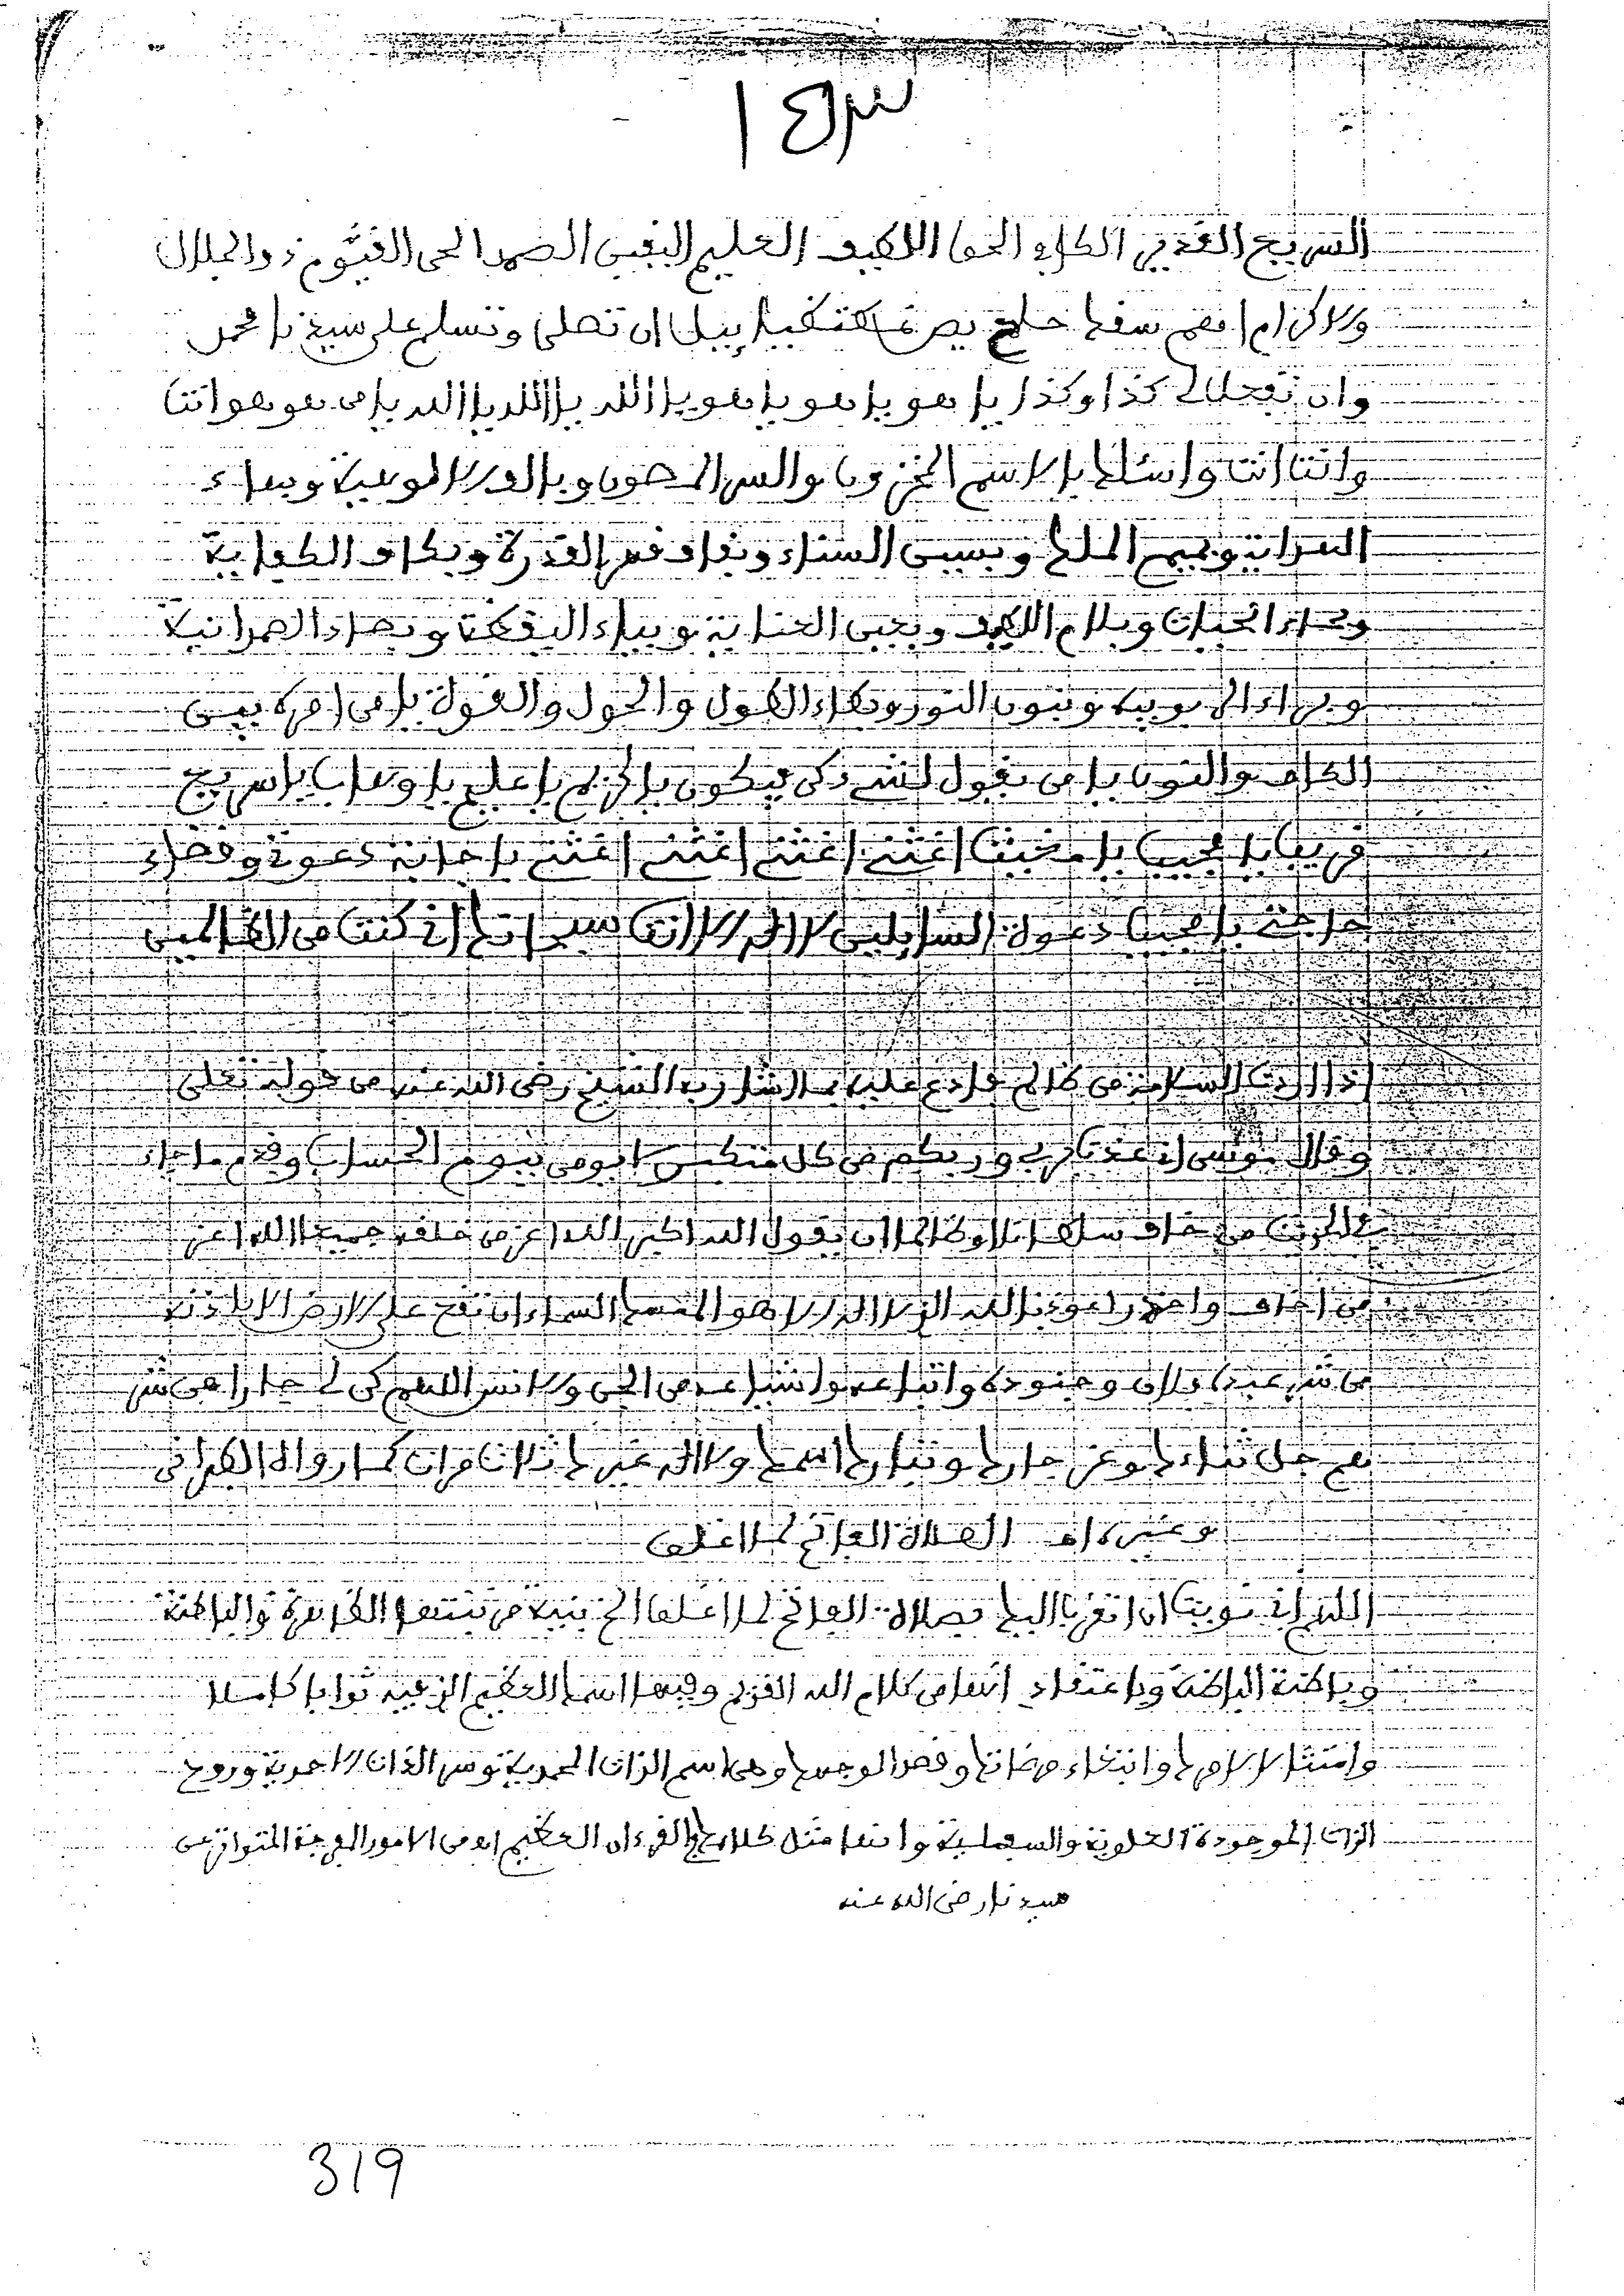 السريع القدير الكافي الحق اللطيف العليم اليقين الصمد الحي القيوم ذو الجلال
والاكرام
ان تصلي وتسلم على سيدنا محمد
وان تفعل لي كذا وكذا يا هو يا هو يا هو يا الله يا الله يا الله يا من هو هو انت
وانت انت واسئلك بالاسم المخزون والسر المصون وبالف الالوهية وبهاء
الهداية وبميم الملك وبسين السناء وبقاف قهر القدرة وبكاف الكفاية
وبحاء الحياة وبلام اللطف وبعين العناية وبياء اليقظة وبصاد الصمدانية
وبراء الربوبية وبنون النور وبطاء الطول والحول والقوة يا من امره بين
الكاف والنون يا من يقول لشيء كن فيكون يا كريم يا عليم يا وهاب يا سريع
قريب يا مجيب يا مغيث اغثني اغثني اغثني باجابة دعوتي وقضاء
حاجتي يا مجيب دعوة السائلين لا اله الا انت سبحانك اني كنت من الظالمين
اذا اردت السلامة من ظالم فادع عليه بما اشار به الشيخ رضي الله عنه من قوله تعلى
وقال موسى اني عذت بربي وربكم من كل متكبر لا يومن بيوم الحساب وقدم ما جاء
في الحديث من خاف سلطانا او ظالما ان يقول الله اكبر الله اعز من خلقه جميعا الله اعز
من اخاف واحذر اعوذ بالله الذي لا اله الا هو الممسك السماء ان تقع على الارض الا باذنه
من شر عبدك فلان وجنوده واتباعه واشياعه من الجن والانس اللهم كن لي جارا من شر
هم جل ثناءك وعز جارك وتبارك اسمك ولا اله غيرك ثلاث مرات كما رواه الطبراني
وغيره اه الصلاة الفاتح لما اغلق
اللهم اني نويت ان اتقرب اليك بصلاة الفاتح لما اغلق الخ بنية مرتبتها الظاهرة والباطنة
وباطنة الباطنة وباعتقاد انها من كلام الله القديم وفيها اسمك العظيم الاعظم ثوابا كاملا
وامتثالا لامرك وابتغاء مرضاتك وقصدا لوجهك وهي اسم الذات المحمدية وسر الذات الاحمدية وروح
الذات الموجودة العلوية والسفلية وانها مثل كلامك القرءان العظيم اه من الامور المرجية المتواترة عن
سيدنا رضي الله عنه
319